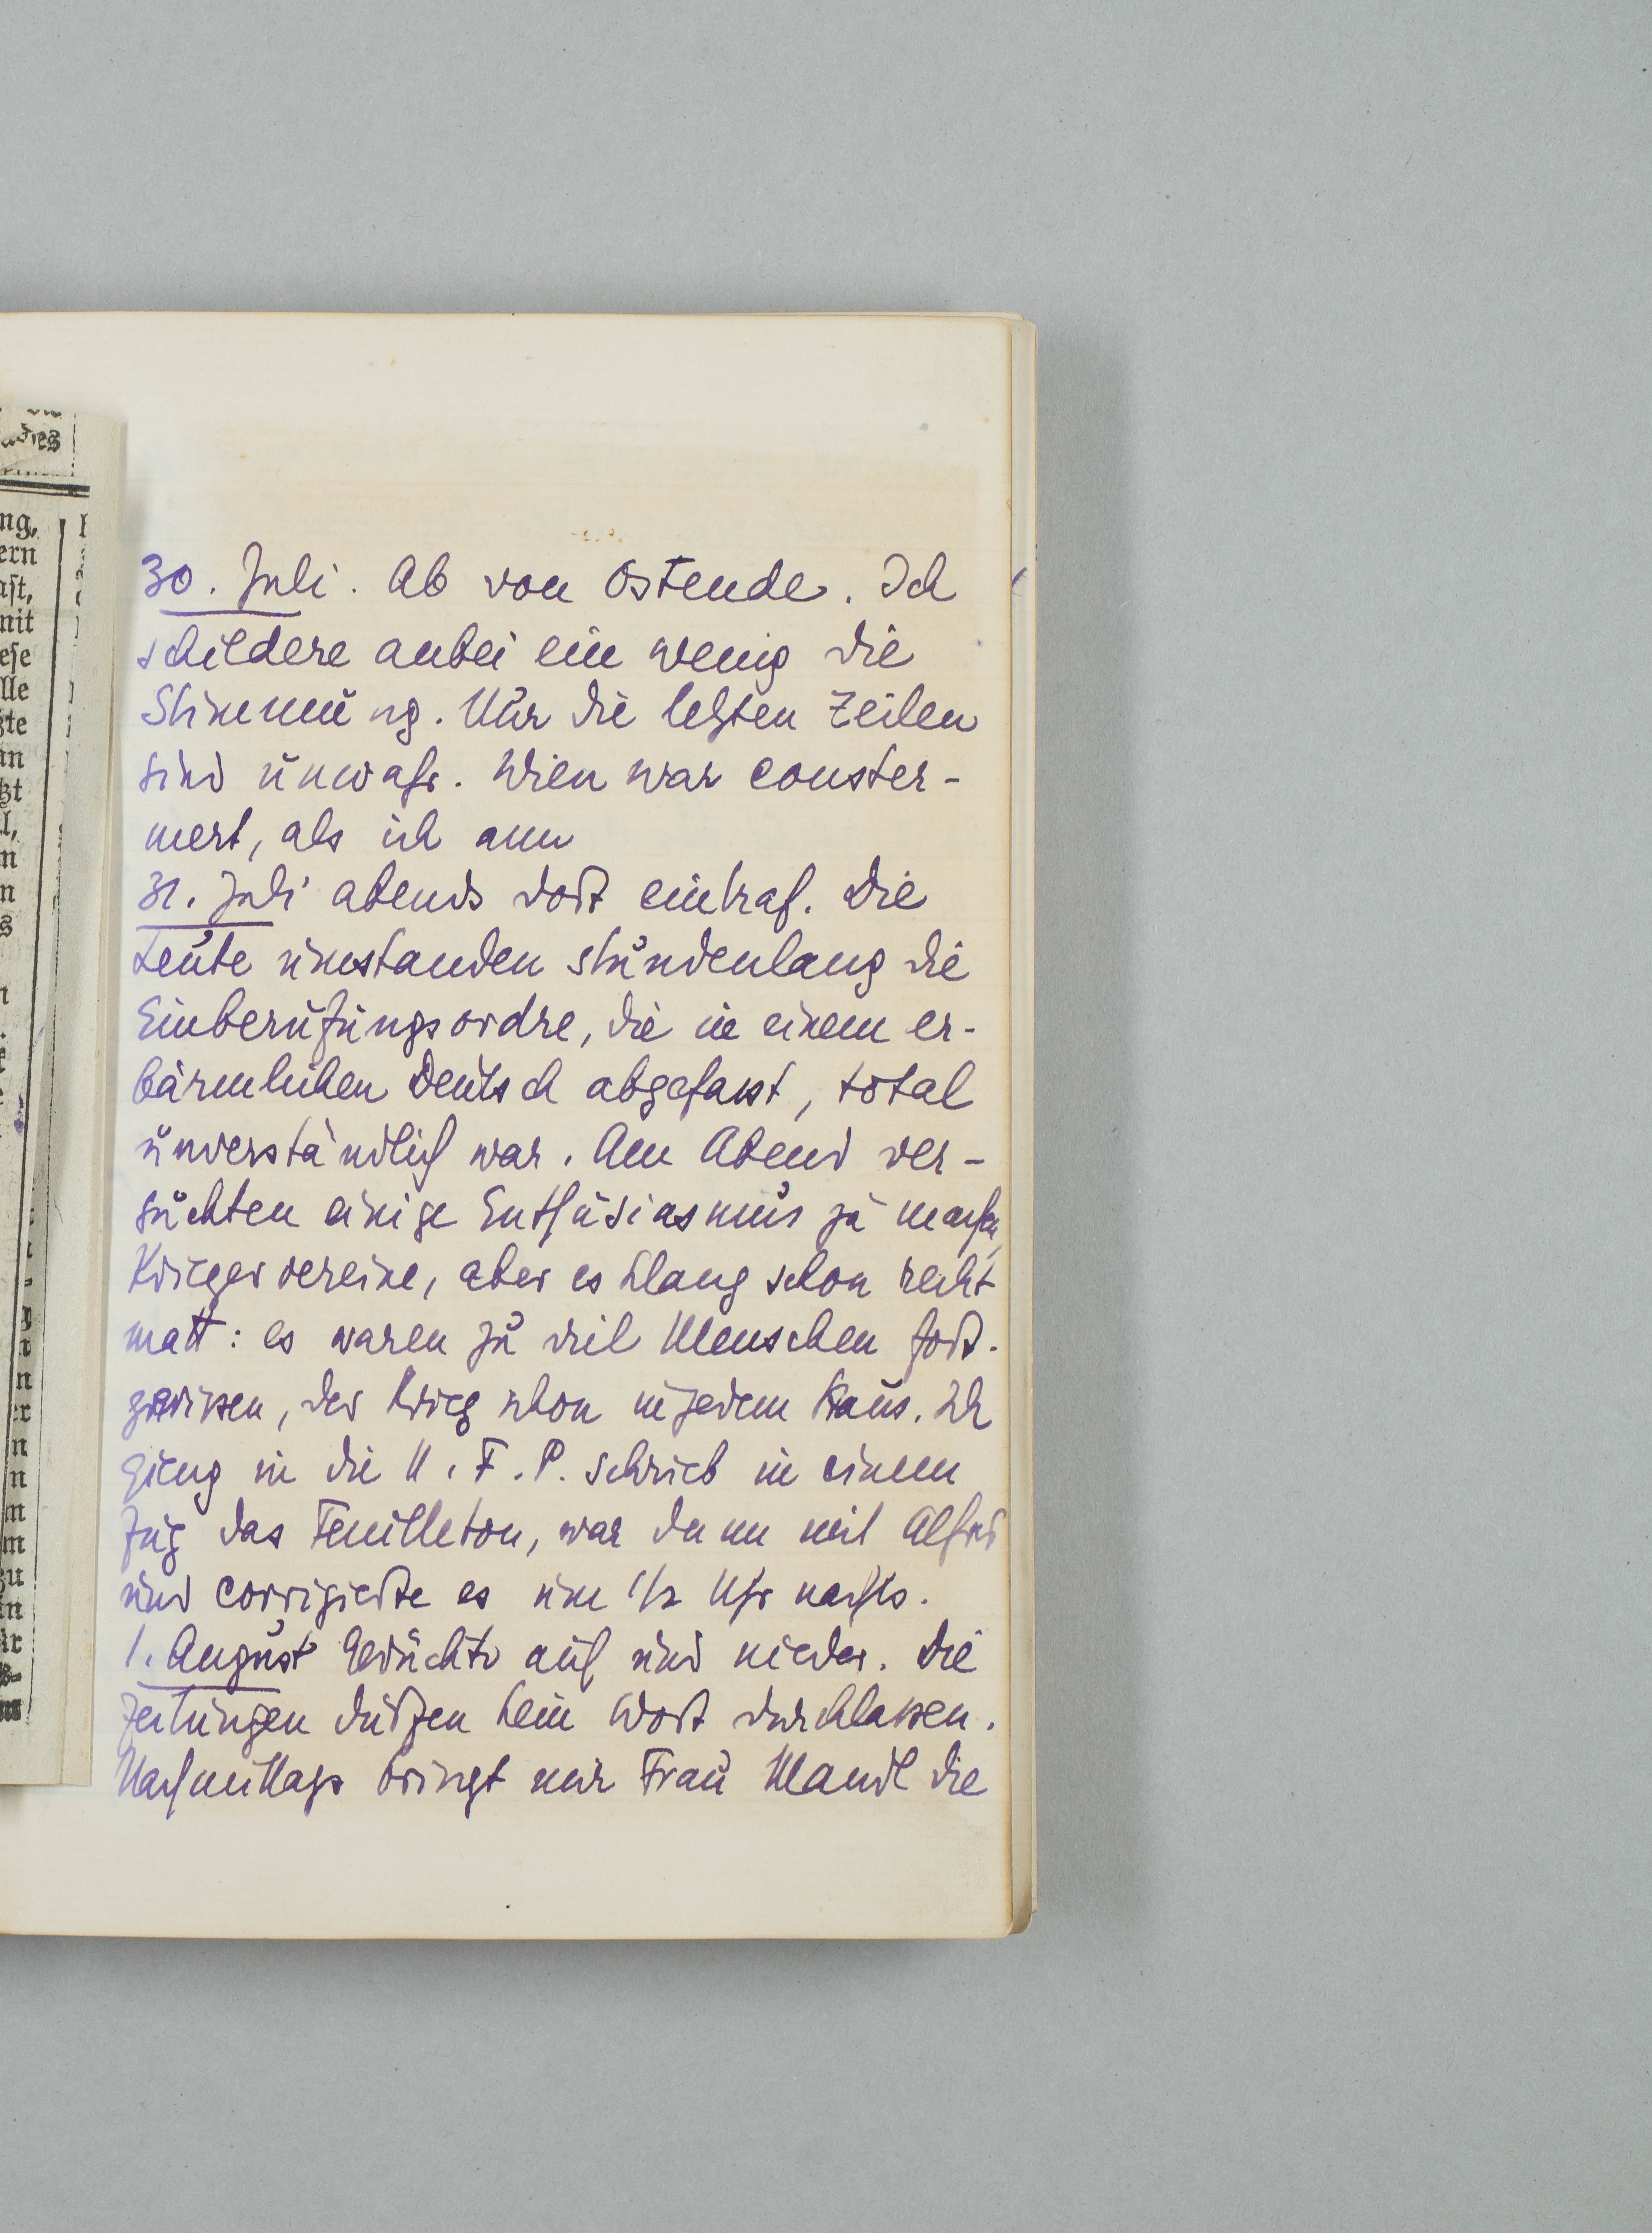 30. Juli. Ab von Ostende. Ich
schildere anbei ein wenig die
Stimmung. Nur die letzten Zeilen
sind unwahr. Wien war conster-
niert, als ich am
31. Juli abends dort eintraf. Die
Leute umstanden stundenlang die
Einberufungsordre, die in einem er-
bärmlichen Deutsch abgefasst, total
unverständlich war. Am Abend ver-
suchten einige Enthusiasmus zu machen,
Kriegervereine, aber es klang schon recht
matt: es waren zu viel Menschen fort-
gerissen, der Krieg schon in jedem Haus. Ich
gieng in die N. F. P. schrieb in einem
Zug das Feuilleton, war dann mit Alfred
und corrigierte es um 1/2 Uhr nachts.
1. August Gerüchte auf und nieder. Die
Zeitungen dürfen kein Wort durchlassen.
Nachmittags bringt mir Frau Mandl die
ng,
ern
aft,
mit
ese
lle
gte
an
tzt
l,
n
n
s
n
er
n
n
m
m
zu
in
ür